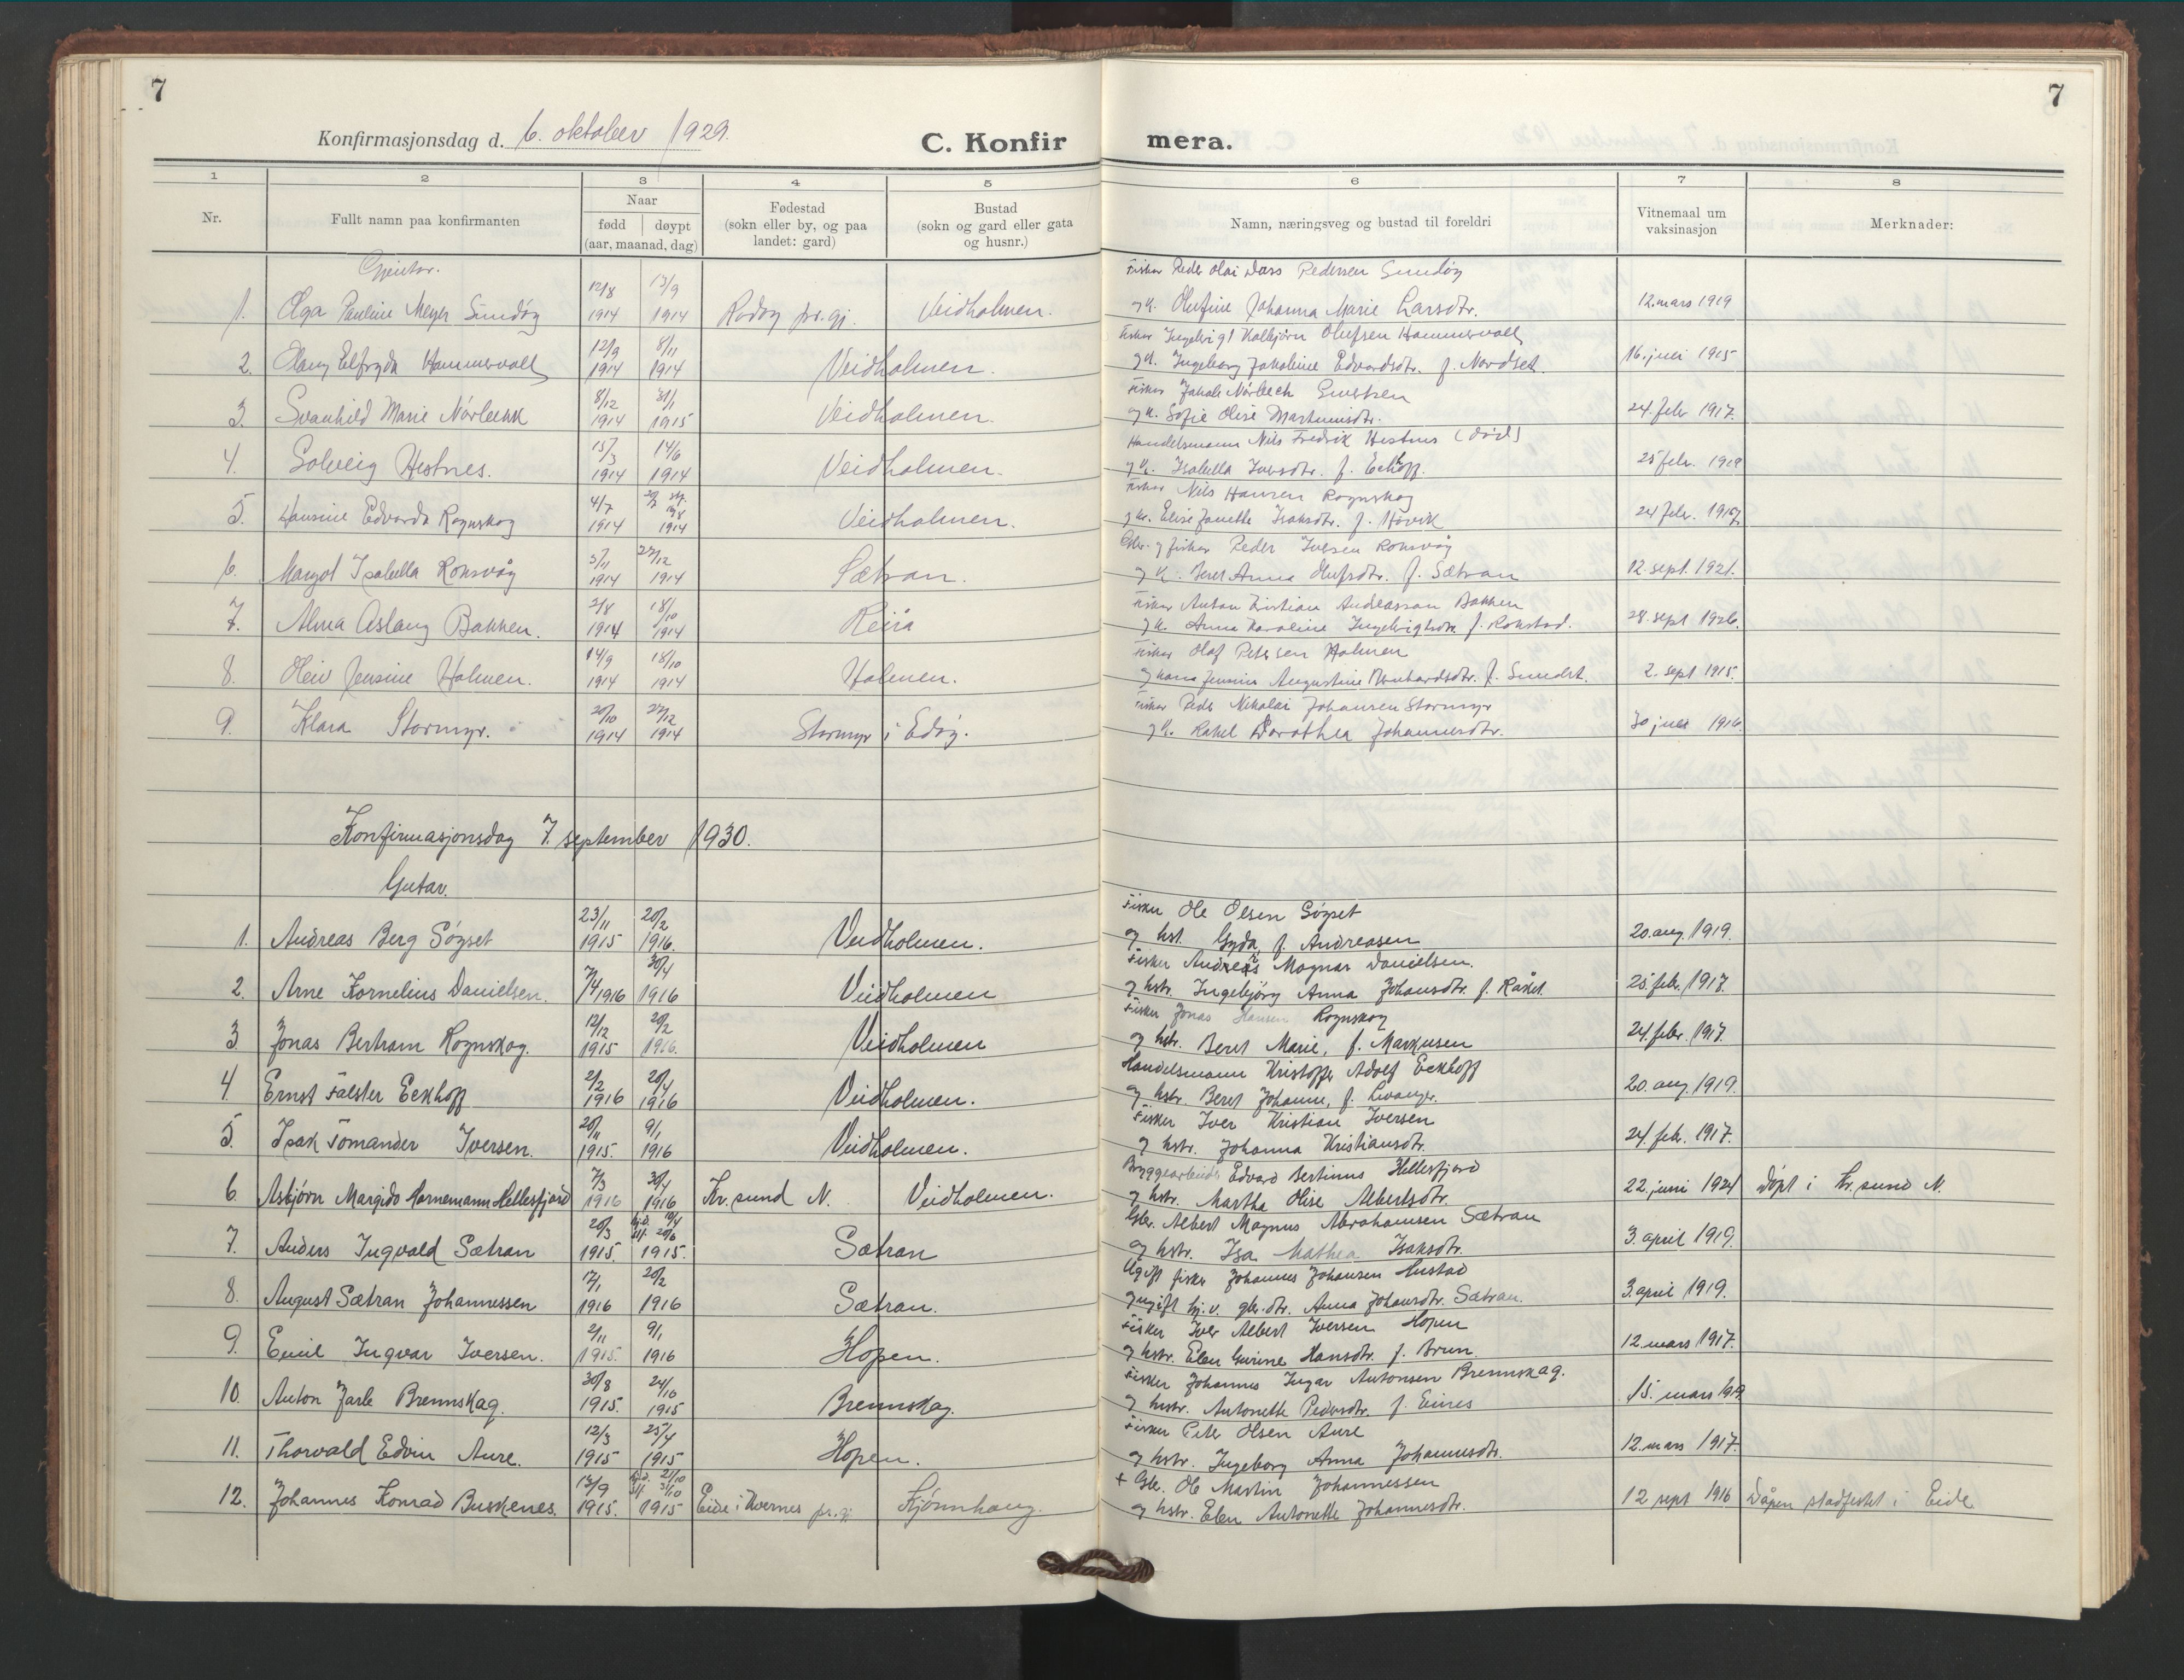 7
7
Konfirmasjonsdag d. 6. oktober 1929.
C. Konfirmera.
1 2 3 4 5 6 7 8
Nr.
Fullt namn paa konfirmanten
Naar
fødd døypt
(aar, maanad, dag)
Fødestad
(sokn eller by, og paa
landet: gard)
Bustad
(sokn og gard eller gata
og husnr.)
Namn, næringsveg og bustad til foreldri
Vitnemaal um
vaksinasjon
Merknader:
Gjentor.
1. Olga Pauline Meyer Sundøy 12/8 1914 13/9 1914 Rødøy pr.gj. Veidholmen.
Fisker Peder Olai Dass Pedersen Sundøy
og k. Olufine Johanna Marie Larsdtr. 12. mars 1919
2. Hammervoll 12/9 1914 8/11 1914 Veidholmen.
Fisker Ingebrigt Kolbjørn Olufsen Hammervoll
og k. Ingeborg Jakobine Edvardsdtr. f. Nordset. 16. juli 1915
3. Svanhild Marie Nörbekk 8/12 1914 31/1 1915 Veidholmen.
Fisker Jakob Nörbech
og k. Sofie Olise Martinusdtr. 24. febr 1917.
4. Solveig Hestnes. 15/3 1914 14/6 1914 Veidholmen.
Handelsmann Nils Fredrik Hestnes (död)
og k. Isabella Iversdtr. f. Eckhoff. 25 febr. 1919
5. Hansine Edvarda Rognskog 4/7 1914 1914 Veidholmen.
Fisker Nils Hansen Rognskog
og k. Elise Janette Isaksdtr. f. Hövik 24 febr. 1917
6. Margot Isabella Roksvåg 3/11 1914 27/12 1914 Sætran.
Gbr. og fisker Peder Iversen Roksvåg
og k. Beret Anna Olufsdtr. f. Sætran 12. sept. 1921.
7. Alma Aslaug Bakken. 2/8 1914 18/10 1914
Fisker Anton Kristian Andreassen Bakken
og k. Anna Karoline Ingebrigtsdtr f. Rokstad. 28. sept 1926.
8. Oleiv Jensine Holmen. 14/9 1914 18/10 1914 Holmen.
Fisker Olaf Petersen Holmen
og kona Jensine Augustine Bernhardsdtr. f. Sundet. 2. sept 1915.
9. Klara Stormyr. 20/10 1914 27/12 1914 Stormyr i Edøy.
Fisker Peder Nikolai Johansen Stormyr
og k. Rakel Dorothea Johannesdtr. 30 juli 1916.
Konfirmasjonsdag 7. september 1930.
Gutar.
1. Andreas Berg Söyset 23/11 1915 20/2 1916. Veidholmen.
Fisker Ole Olsen Söyset
og hst. Gyda f. Andreasen 20. aug. 1919.
2. Arne Kornelius Danielsen. 7/4 1916 30/4 1916 Veidholmen
Fisker Andreas Magnar Danielsen.
og hstr. Ingebjörg Anna Johansdtr. f. Råket. 25. feb. 1917.
3 Jonas Bertram Rognskog. 12/12 1915 20/2 1916. Veidholmen
Fisker Jonas Hansen Rognskog
og hstr. Beret Marie, f. Markusen 24. febr. 1917.
4. Ernst Falster Eckhoff 2/2 1916 20/4 1916 Veidholmen.
Handelsmann Kristoffer Adolf Eckhoff
og hstr. Beret Johanne, f. Levanger. 20. aug. 1919.
5. Isak Tomander Iversen. 20/11 1915. 9/1 1916 Veidholmen.
Fisker Iver Kristian Iversen
og hstr. Johanna Kristiansdtr. 24. feb. 1917.
6. Asbjörn Margido Hornemann Hellesfjord 7/3 1916 30/4 1916 Kr.sund N. Veidholmen.
Bryggearbeider Edvard Bertinus Hellesfjord
og hstr. Martha Olise Albertsdtr. 22. juni 1921 döpt i Kr.sund N.
7. Anders Ingvald Sætran 20/3 1915. hj.d. 18/4 st. 20/6 1915. Sætran
Gbr. Albert Magnus Abrahamsen Sætran
og hstr. Isa Mathea Isaksdtr. 3. april 1919.
8. August Sætran Johannessen 17/1 1916 20/2 1916 Sætran.
Ugift fisker Johannes Johansen Hustad
og ugift hj.v. gbr.dtr. Anna Johansdtr. Sætran. 3. april 1919.
9. Emil Ingvar Iversen. 2/11 1915. 9/1 1916 Hopen.
Fisker Iver Albert Iversen Hopen
og hstr. Elen Gurine Hansdtr. f. Brun. 12. mars 1917.
10. Anton Jarle Brennskag. 30/8 1915. 24/10 1915 Brennskag.
Fisker Johannes Ingar Antonsen Brennskag.
og hstr. Antonette Pedersdtr. f. Eines 15. mars 1919
11. Thorvald Edvin Aure. 12/3 1915 25/4 1915 Hopen.
Fisker Peter Olsen Aure
og hstr. Ingeborg Anna Johannesdtr. 12. mars 1917.
12. Johannes Konrad Buskenes. 13/9 1915. hj.d. 2/10 st. 31/10 1915 Eide i Kvernes pr.gj. Kjönnhaug.
+ Gbr. Ole Martin Johannessen
og hstr. Elen Antonette Johannesdtr. 12 sept 1916 Dåpen stadfestet i Eide